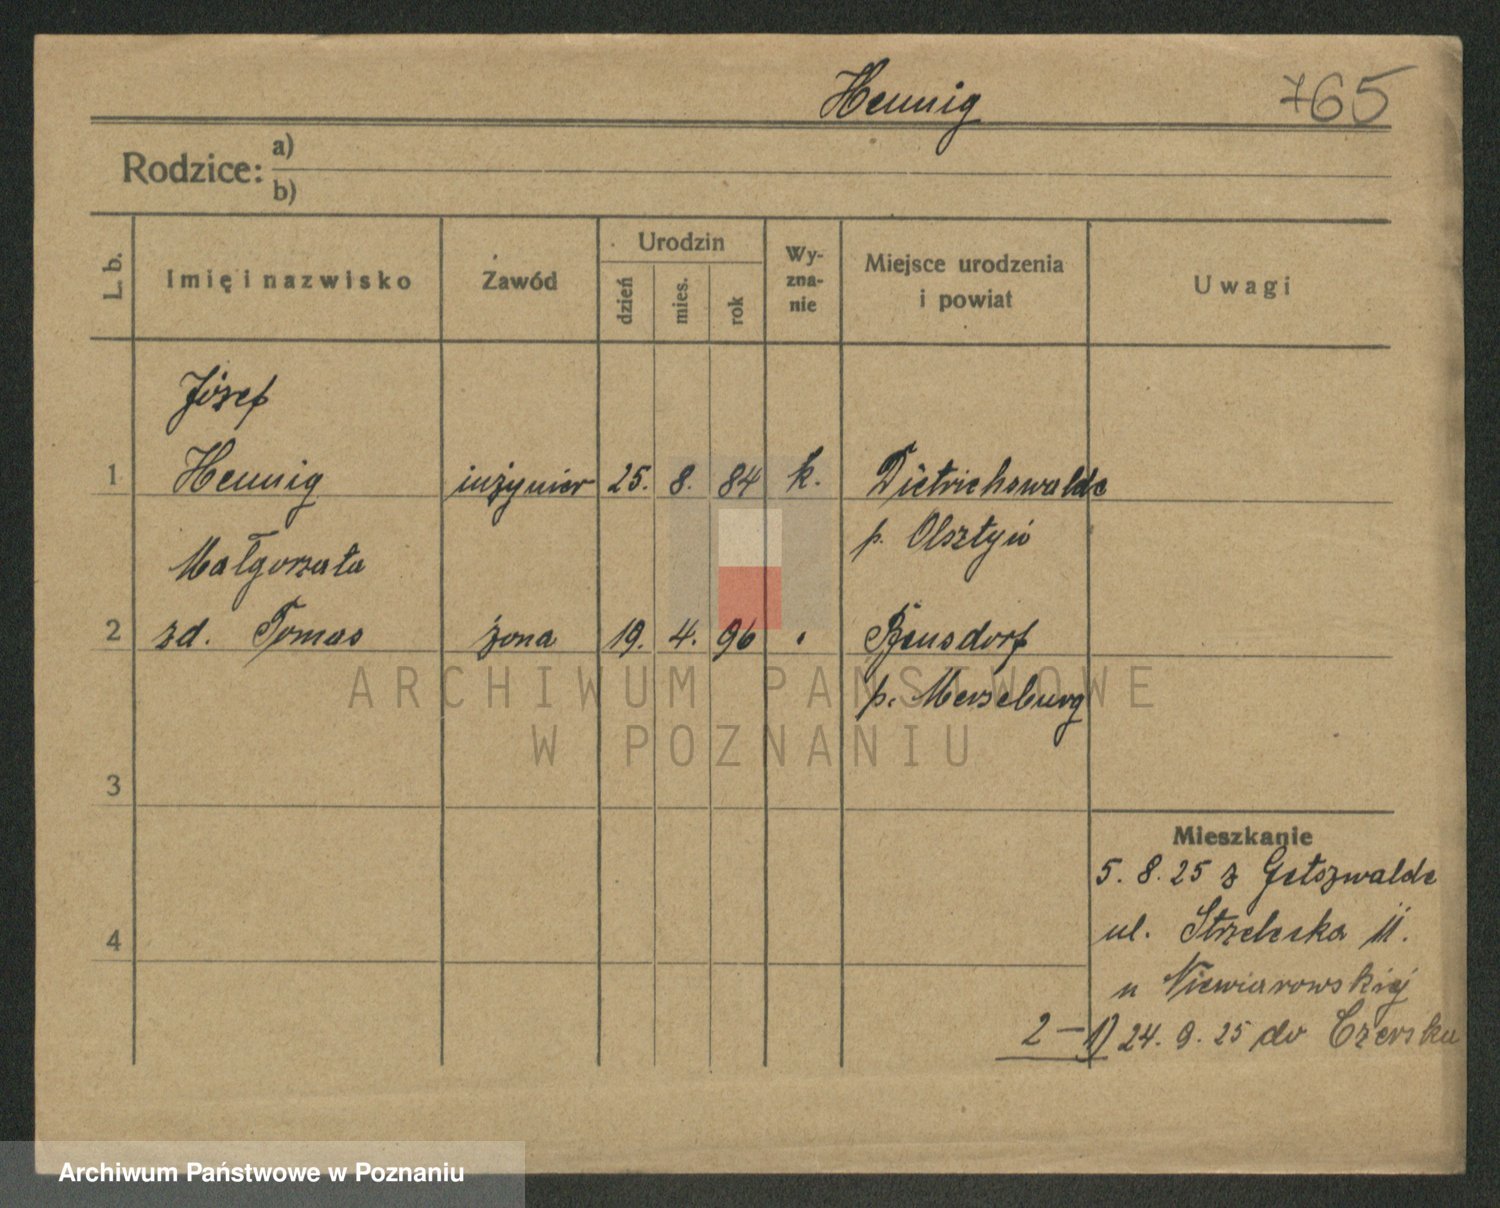 Hennig 765
Rodzice: a)
b)
L. b. Imię i nazwisko Zawód Urodzin dzień mies. rok Wy-zna-nie Miejsce urodzenia i powiat Uwagi
Józef
1 Hennig inżynier 25. 8. 84 k. Dietrichswalde
p. Olsztyn
Małgorzata
2 zd. Tomas żona 19. 4. 96 Bensdorf
p. Merseburg
3
Mieszkanie
5. 8. 25 z Getszwalde
4 ul. Strzelecka 11.
u Niewiarowskiej
2 – 1) 24. 9. 25 do Czerska
ARCHIWUM PAŃSTWOWE
W POZNANIU
Archiwum Państwowe w Poznaniu